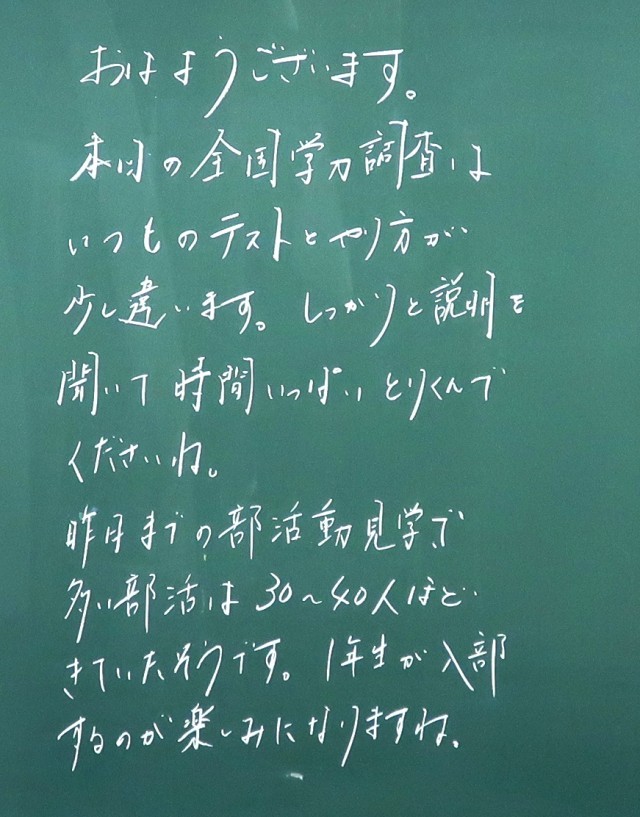 おはようございます。
本日の全国学力調査は
いつものテストとやり方が
少し違います。しっかりと説明を
聞いて時間いっぱいとりくんで
くださいね。
昨日までの部活動見学で
多い部活は30～40人ほど
きていたそうです。1年生が入部
するのが楽しみになりますね。